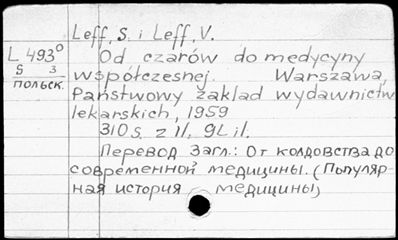 Leff, S. i Leff, V.
L 493⁰
5 3
польск.
Od czarów do medycyny
współczesnej. Warszawa,
Państwowy zakład wydawnictw
lekarskich, 1959
310 s. z il, 9L il.
Перевод загл.: От колдовства до
современной медицины. (Популяр
ная история медицины)